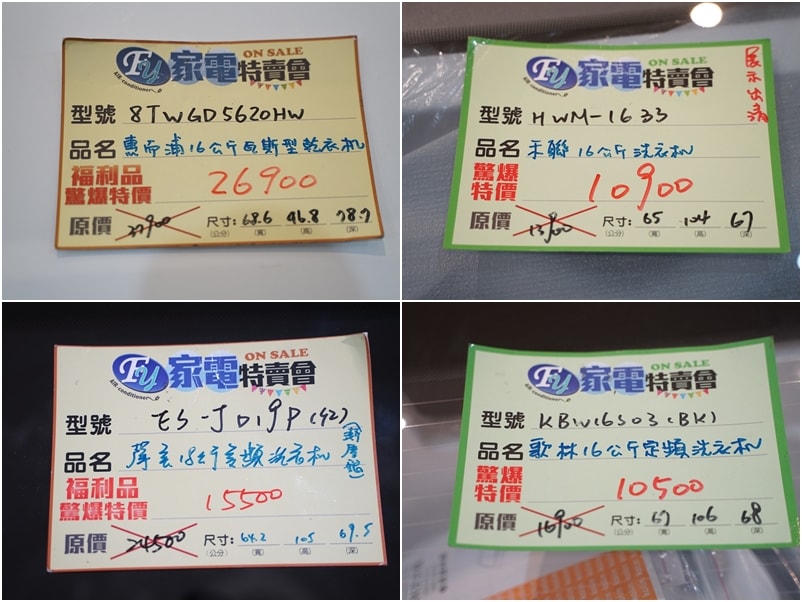 FY 家電特賣會 ON SALE
AIR-conditioner
型號 8TWGD5620HW
品名 惠而浦16公斤瓦斯型乾衣机
福利品
驚爆特價 26900
原價 尺寸: 68.6 96.8 78.7
(公分) (寬) (高) (深)
FY 家電特賣會 ON SALE
AIR-conditioner
展示出清
型號 HWM-1633
品名 禾聯16公斤洗衣机
驚爆
特價 10900
原價 尺寸: 65 104 67
(公分) (寬) (高) (深)
FY 家電特賣會 ON SALE
AIR-conditioner
型號 ES-JD19P(S2)
品名 聲寶18公斤变頻洗衣机
福利品
驚爆特價 15500
原價 24500 尺寸: 64.2 105 69.5
(公分) (寬) (高) (深)
FY 家電特賣會 ON SALE
AIR-conditioner
型號 KBW16S03(BK)
品名 歌林16公斤定頻洗衣机
驚爆
特價 10500
原價 16900 尺寸: 67 106 68
(公分) (寬) (高) (深)